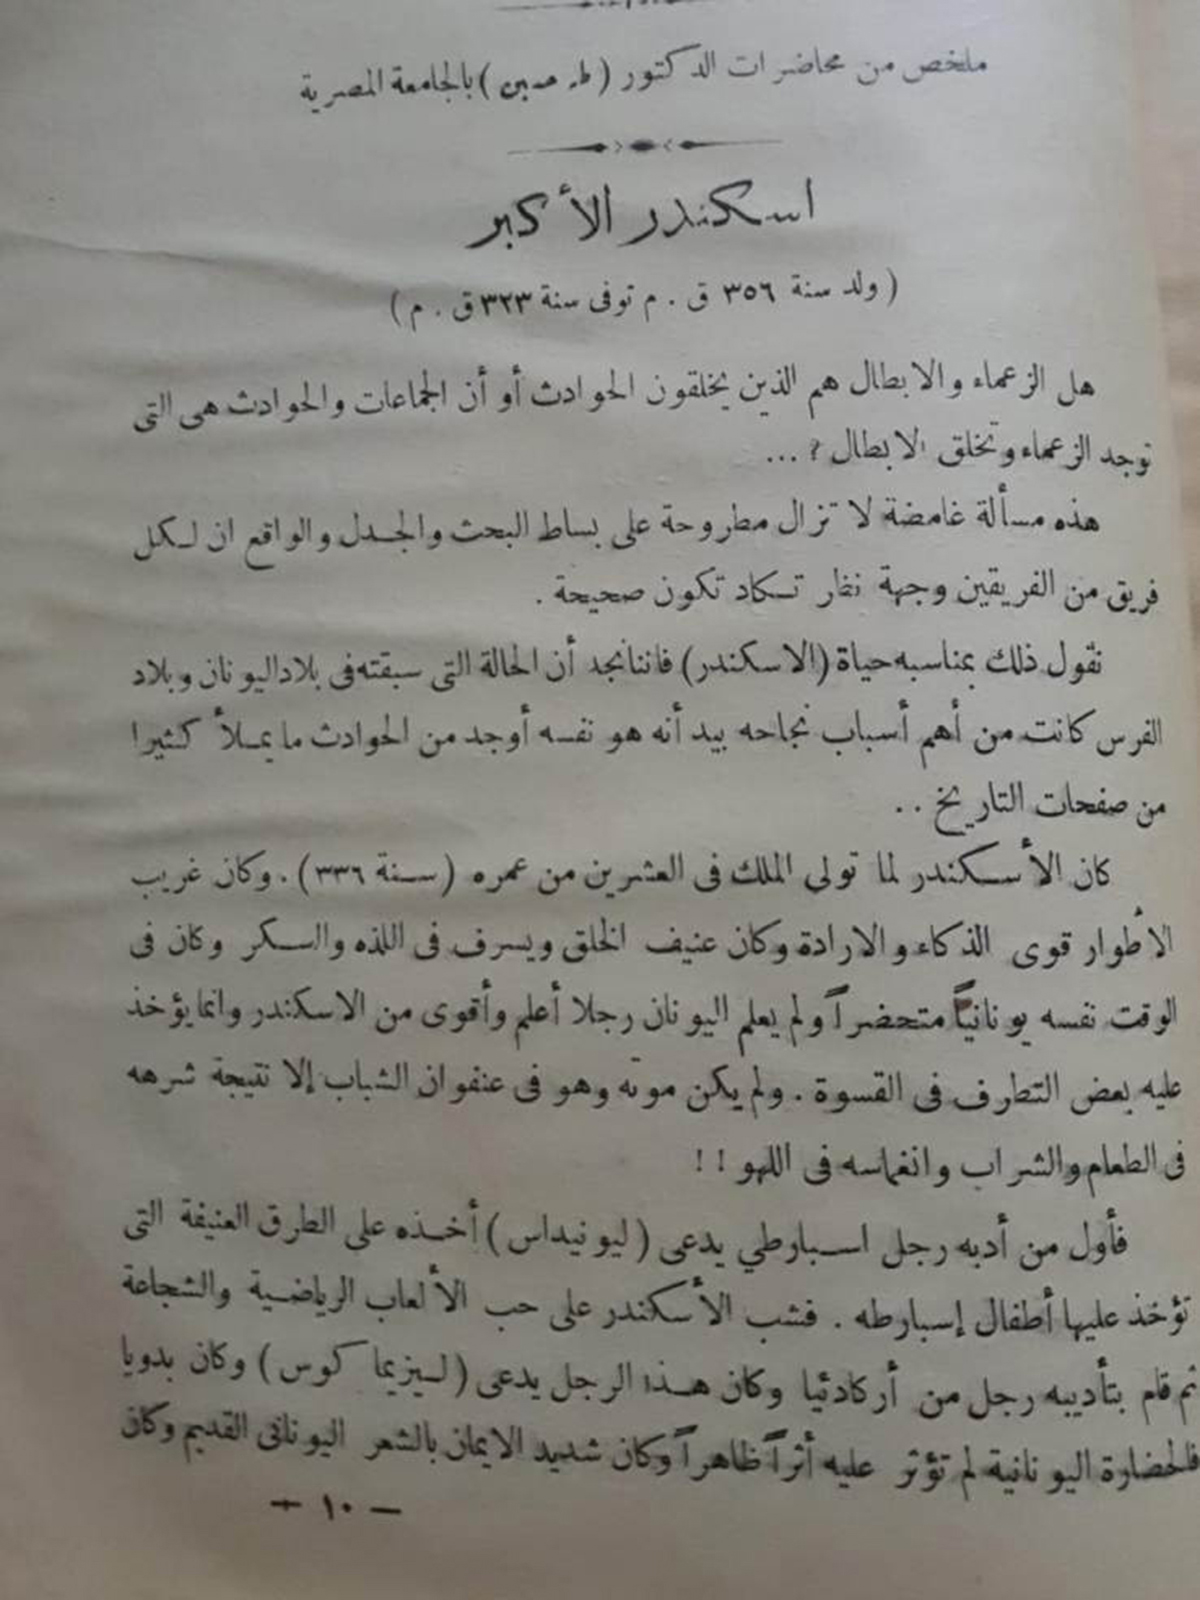 ملخص من محاضرات الدكتور ( طه حسين ) بالجامعة المصرية
اسكندر الأكبر
( ولد سنة ٣٥٦ ق . م توفى سنة ٣٢٣ ق . م )
هل الزعماء والابطال هم الذين يخلقون الحوادث أو أن الجماعات والحوادث هى التى
توجد الزعماء وتخلق الابطال ؟ ...
هذه مسألة غامضة لا تزال مطروحة على بساط البحث والجدل والواقع ان لكل
فريق من الفريقين وجهة نظر تكاد تكون صحيحة .
نقول ذلك بمناسبه حياة (الاسكندر) فاننانجد أن الحالة التى سبقته فى بلاد اليونان وبلاد
الفرس كانت من أهم أسباب نجاحه بيد أنه هو نفسه أوجد من الحوادث ما يملأ كثيرا
من صفحات التاريخ . .
كان الأسكندر لما تولى الملك فى العشرين من عمره ( سنة ٣٣٦ ) . وكان غريب
الأطوار قوى الذكاء والارادة وكان عنيف الخلق ويسرف فى اللذه والسكر وكان فى
الوقت نفسه يونانياً متحضراً ولم يعلم اليونان رجلا أعلم وأقوى من الاسكندر وانما يؤخذ
عليه بعض التطرف فى القسوة . ولم يكن موته وهو فى عنفوان الشباب إلا نتيجة شرهه
فى الطعام والشراب وانغماسه فى اللهو ! !
فأول من أدبه رجل اسبارطي يدعى ( ليونيداس ) أخذه على الطرق العنيفة التى
تؤخذ عليها أطفال إسبارطه . فشب الأسكندر على حب الألعاب الرياضية والشجاعة
ثم قام بتأديبه رجل من أركادئيا وكان هذا الرجل يدعى ( ليزيماكوس ) وكان بدويا
فالحضارة اليونانية لم تؤثر عليه أثراً ظاهراً وكان شديد الايمان بالشعر اليونانى القديم وكان
— ١٠ —